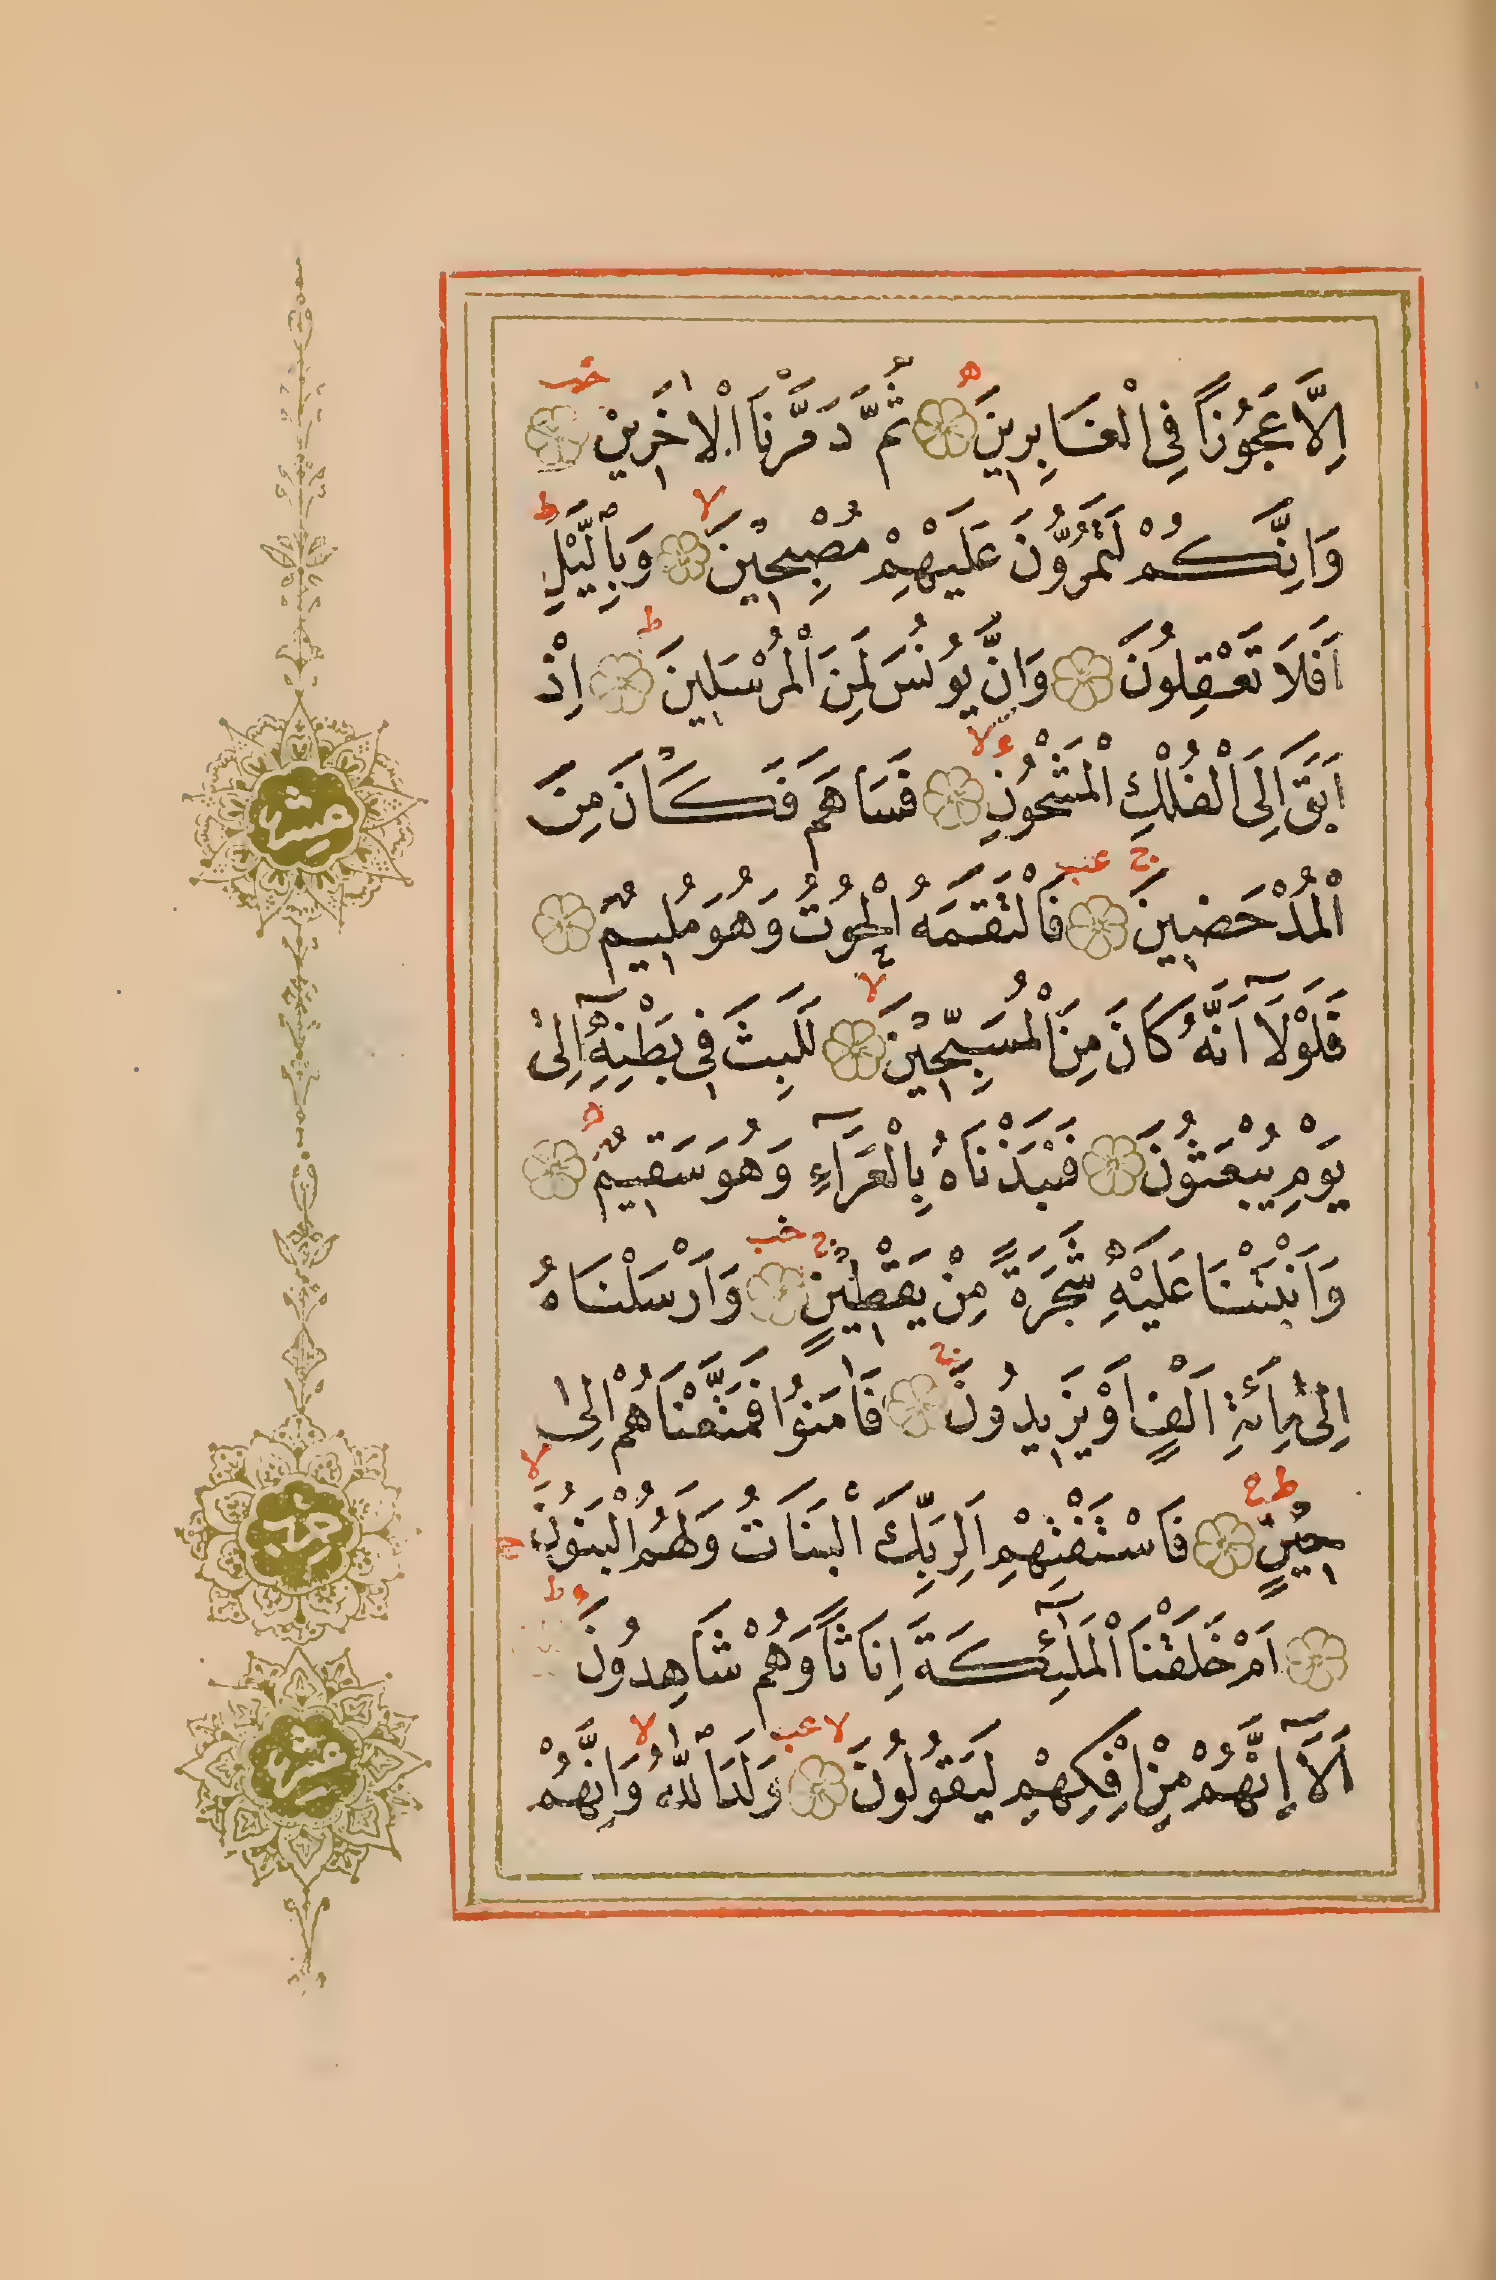 اِلَّا عَجُوزًا فِي الْغَابِرِينَ ثُمَّ دَمَّرْنَا الْاٰخَرِينَ
وَاِنَّكُمْ لَتَمُرُّونَ عَلَيْهِمْ مُصْبِحِينَ وَبِالَّيْلِ
اَفَلَا تَعْقِلُونَ وَاِنَّ يُونُسَ لَمِنَ الْمُرْسَلِينَ اِذْ
اَبَقَ اِلَى الْفُلْكِ الْمَشْحُونِ فَسَاهَمَ فَكَانَ مِنَ
الْمُدْحَضِينَ فَالْتَقَمَهُ الْحُوتُ وَهُوَ مُلِيمٌ
فَلَوْلَآ اَنَّهُ كَانَ مِنَ الْمُسَبِّحِينَ لَلَبِثَ فِي بَطْنِهِ اِلٰى
يَوْمِ يُبْعَثُونَ فَنَبَذْنَاهُ بِالْعَرَآءِ وَهُوَ سَقِيمٌ
وَاَنْبَتْنَا عَلَيْهِ شَجَرَةً مِنْ يَقْطِينٍ وَاَرْسَلْنَاهُ
اِلٰى مِائَةِ اَلْفٍ اَوْ يَزِيدُونَ فَاٰمَنُوا فَمَتَّعْنَاهُمْ اِلٰى
حِينٍ فَاسْتَفْتِهِمْ اَلِرَبِّكَ الْبَنَاتُ وَلَهُمُ الْبَنُونَ
اَمْ خَلَقْنَا الْمَلٰٓئِكَةَ اِنَاثًا وَهُمْ شَاهِدُونَ
اَلَآ اِنَّهُمْ مِنْ اِفْكِهِمْ لَيَقُولُونَ وَلَدَ اللّٰهُ وَاِنَّهُمْ